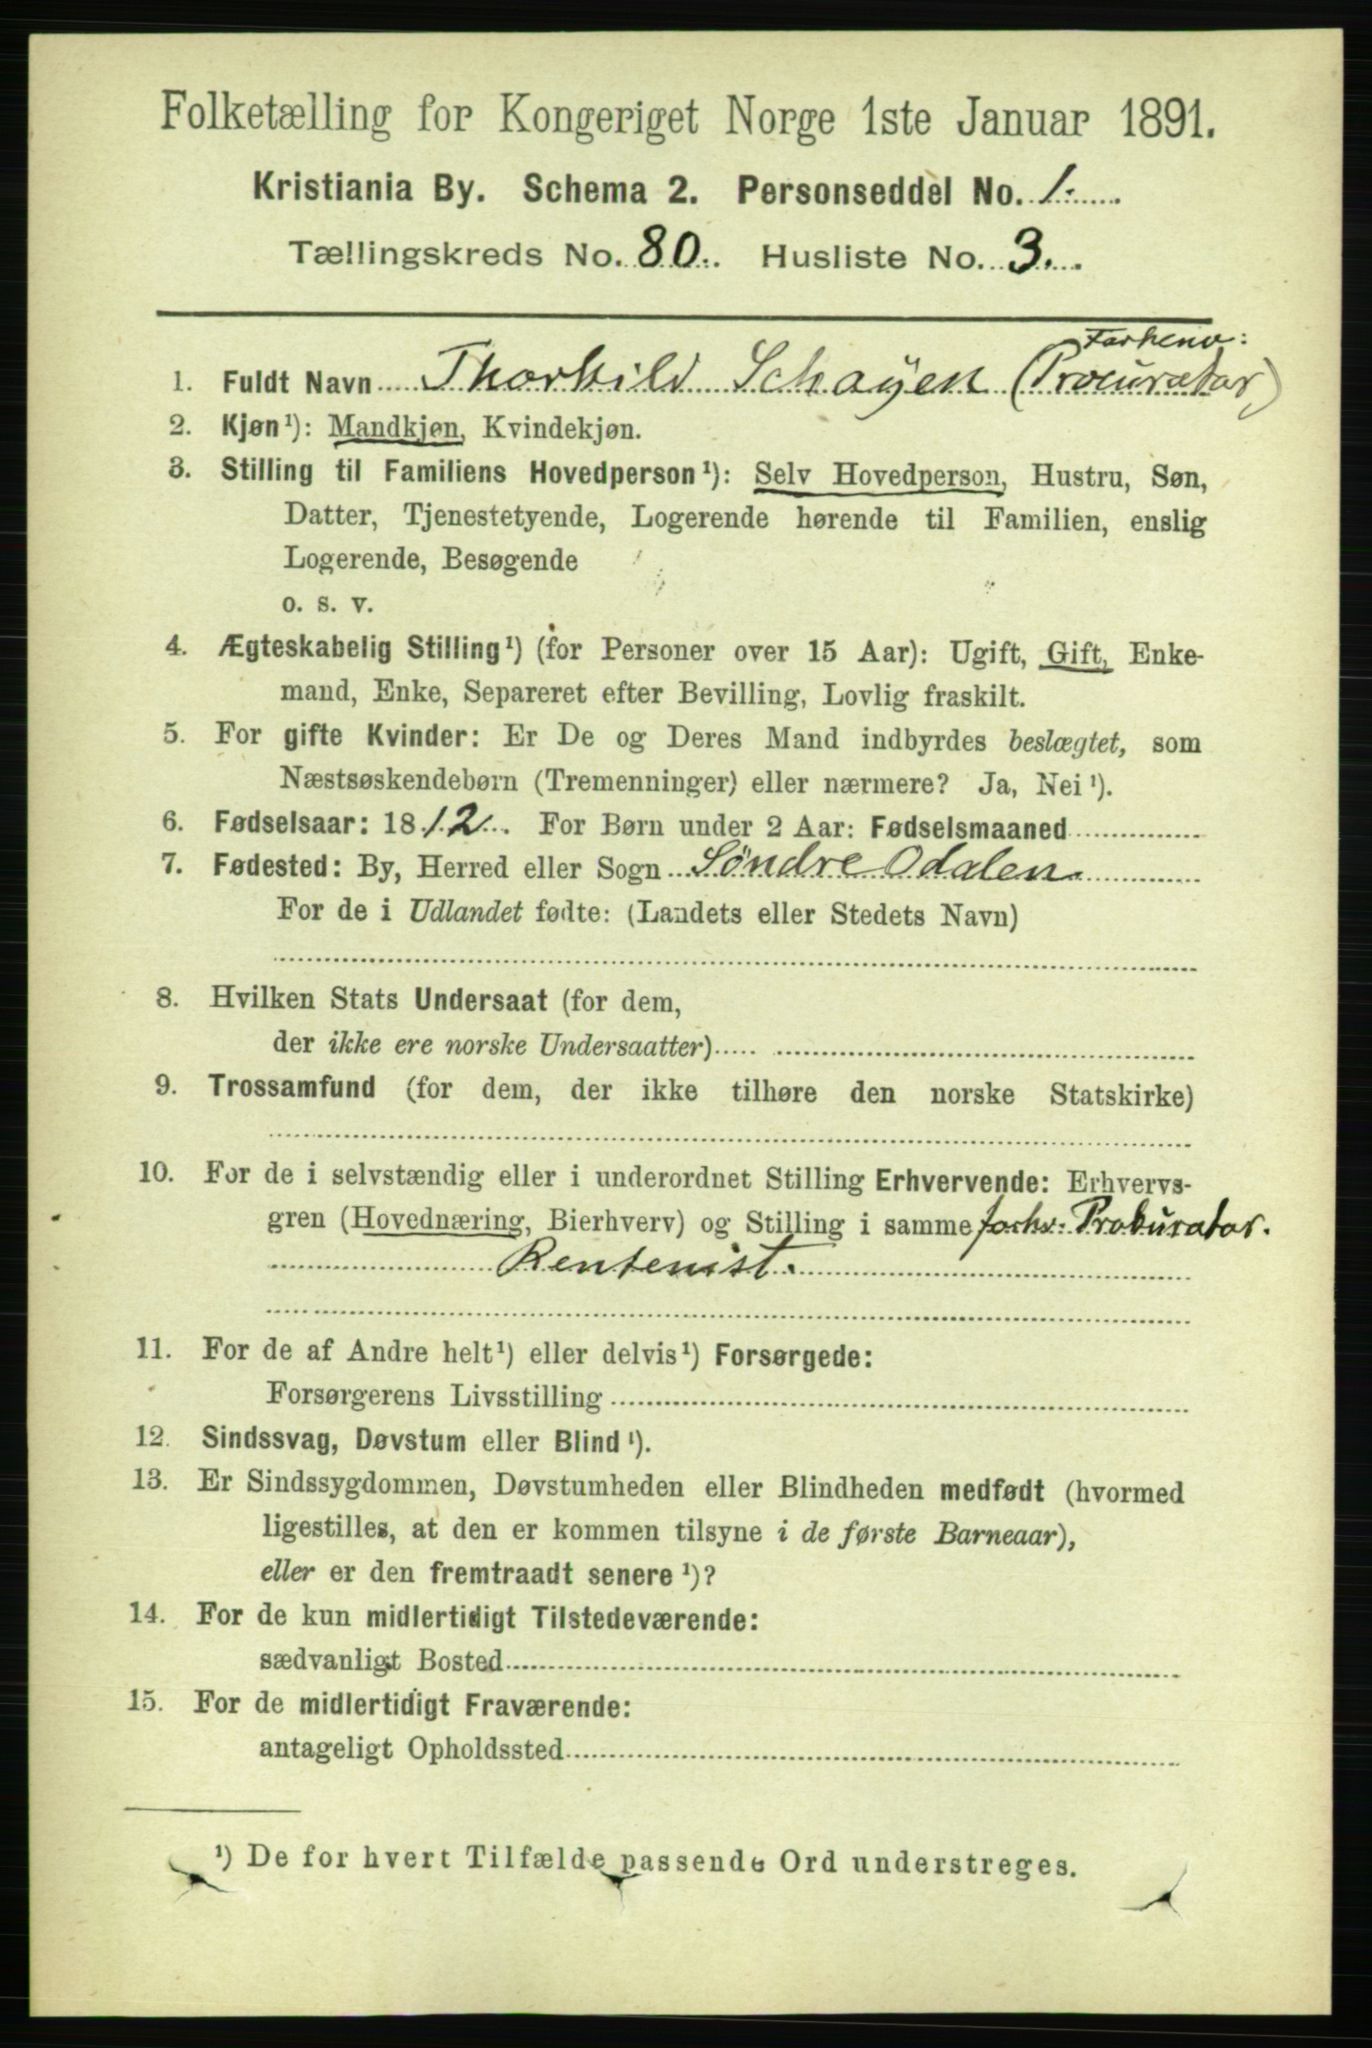 Folketælling for Kongeriget Norge 1ste Januar 1891.
Kristiania By. Schema 2. Personseddel No. 1.
Tællingskreds No. 80. Husliste No. 3.
forhenv:
1. Fuldt Navn Thorkild Schøyen (Procurator)
2. Kjøn¹): Mandkjøn, Kvindekjøn.
3. Stilling til Familiens Hovedperson¹): Selv Hovedperson, Hustru, Søn,
Datter, Tjenestetyende, Logerende hørende til Familien, enslig
Logerende, Besøgende
o. s. v.
4. Ægteskabelig Stilling¹) (for Personer over 15 Aar): Ugift, Gift, Enke-
mand, Enke, Separeret efter Bevilling, Lovlig fraskilt.
5. For gifte Kvinder: Er De og Deres Mand indbyrdes beslægtet, som
Næstsøskendebørn (Tremenninger) eller nærmere? Ja, Nei¹).
6. Fødselsaar: 1812. For Børn under 2 Aar: Fødselsmaaned
7. Fødested: By, Herred eller Sogn Söndre Odalen.
For de i Udlandet fødte: (Landets eller Stedets Navn)
8. Hvilken Stats Undersaat (for dem,
der ikke ere norske Undersaatter)
9. Trossamfund (for dem, der ikke tilhøre den norske Statskirke)
10. For de i selvstændig eller i underordnet Stilling Erhvervende: Erhvervs-
gren (Hovednæring, Bierhverv) og Stilling i samme forhv: Prokurator.
Rentenist.
11. For de af Andre helt¹) eller delvis¹) Forsørgede:
Forsørgerens Livsstilling
12. Sindssvag, Døvstum eller Blind¹).
13. Er Sindssygdommen, Døvstumheden eller Blindheden medfødt (hvormed
ligestilles, at den er kommen tilsyne i de første Barneaar),
eller er den fremtraadt senere¹)?
14. For de kun midlertidigt Tilstedeværende:
sædvanligt Bosted
15. For de midlertidigt Fraværende:
antageligt Opholdssted
¹) De for hvert Tilfælde passende Ord understreges.